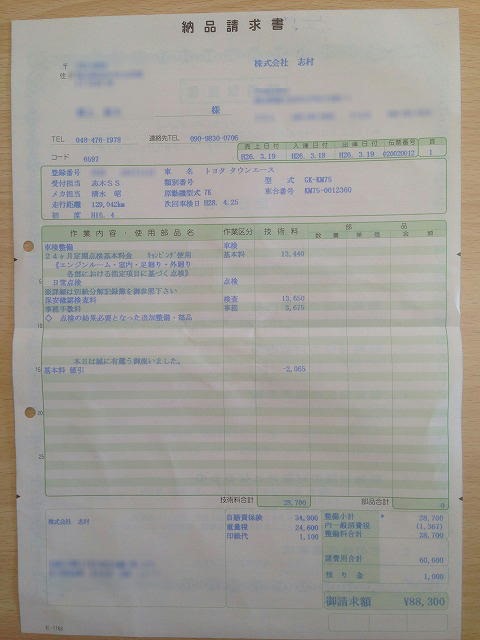 納品請求書
〒
住
株式会社 志村
様
TEL 048-476-1978 連絡先TEL 090-9830-0706
コード 6597
売上日付 入庫日付 出庫日付 伝票番号 頁
H26. 3.19 H26. 3.18 H26. 3.19 020020012 1
登録番号 車名 トヨタ タウンエース
受付担当 志木SS 類別番号 型式 GK-KM75
メカ担当 清水 昭 原動機型式 7K 車台番号 KM75-0012360
走行距離 129,042km 次回車検日 H28. 4.25
初度 H16. 4
作業内容・使用部品名 作業区分 技術料 部品
数量 単価 金額
車検整備 車検
24ヶ月定期点検基本料金 ｷｬﾝﾋﾟﾝｸﾞ使用 基本料 13,440
《エンジンルーム・室内・足廻り・外廻り
各部における指定項目に基づく点検》
5 日常点検 点検
※詳細は別紙分解記録簿を御参照下さい
保安確認検査料 検査 13,650
事務手数料 事務 3,675
10 ◇ 点検の結果必要となった追加整備・部品
本日は誠に有難う御座いました。
15 基本料 値引 -2,065
20
25
技術料合計 28,700 部品合計 0
株式会社 志村
自賠責保険 34,900
重量税 24,600
印紙代 1,100
整備小計 * 28,700
内一般消費税 (1,367)
整備料合計 28,700
諸費用合計 60,600
預り金 1,000
御請求額 ¥88,300